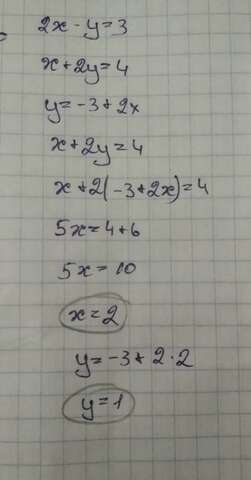 2x - y = 3
x + 2y = 4
y = -3 + 2x
x + 2y = 4
x + 2(-3 + 2x) = 4
5x = 4 + 6
5x = 10
x = 2
y = -3 + 2 · 2
y = 1